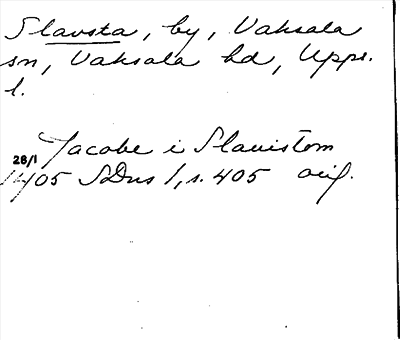 Slavsta, by, Vaksala
sn, Vaksala hd, Upps.
l.
Jacobe i Slauistom
28/1
1405 SDns 1, s. 405 orig.